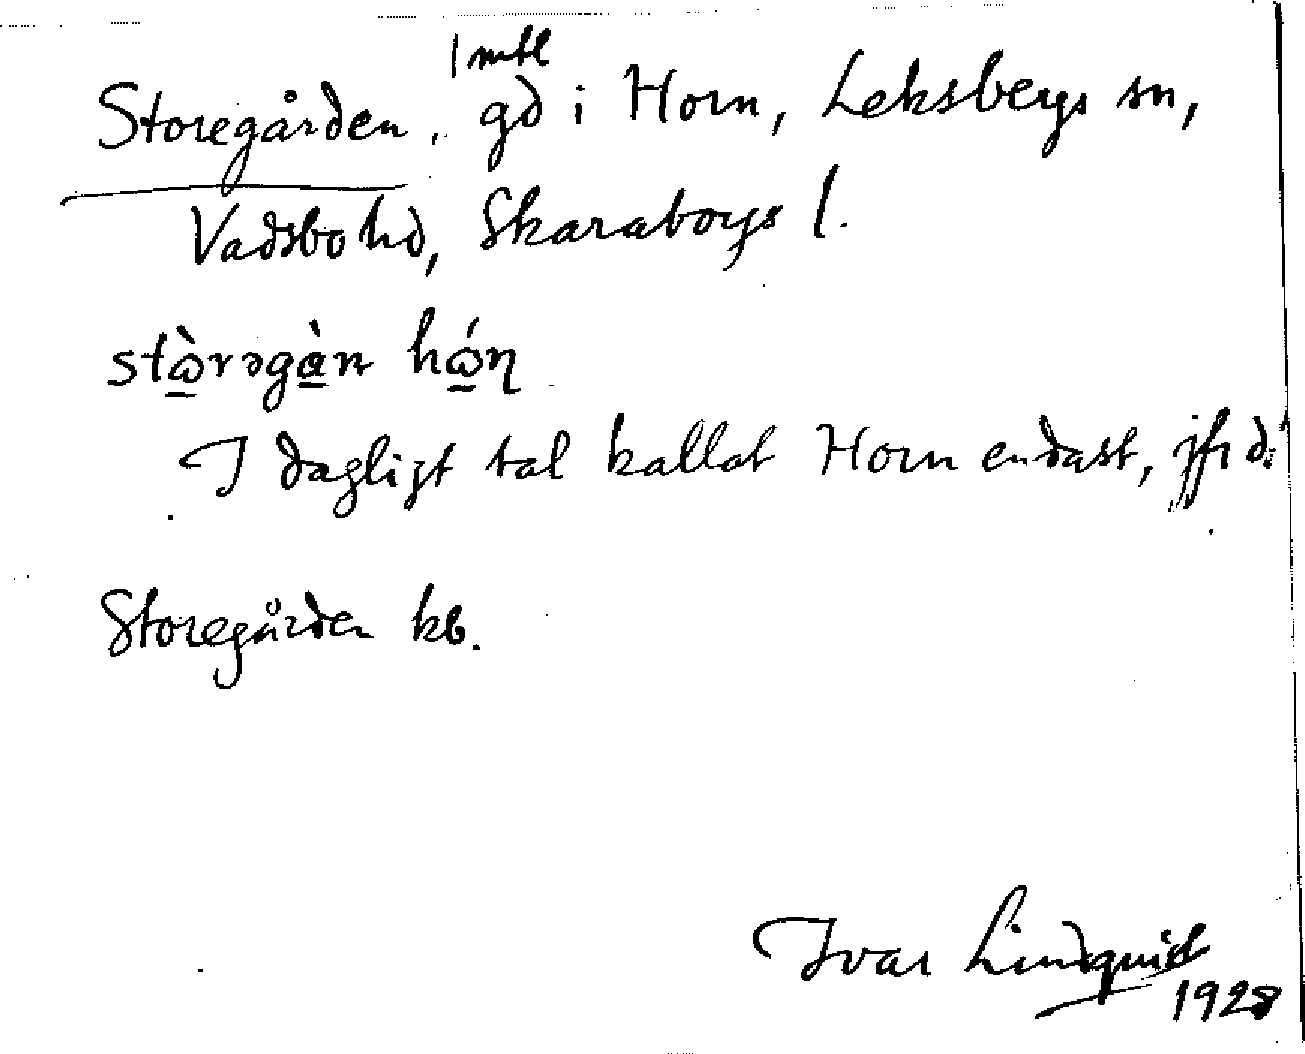 1 mtl
Storegården, gd i Horn, Leksbergs sn,
Vadsbo hd, Skaraborgs l.
stὼ̲rəgὰ̲n hώ̲ɳ
I dagligt tal kallat Horn endast, jfr d:o
Storegården kb.
Ivar Lindquist
1928